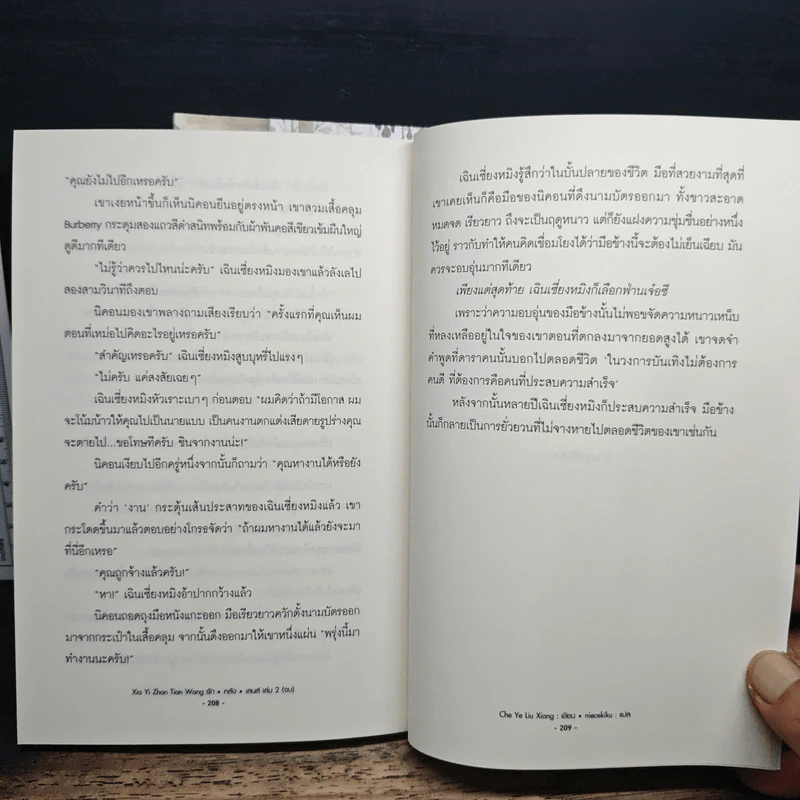 “คุณยังไม่ไปอีกเหรอครับ”
เขาเงยหน้าขึ้นก็เห็นนิคอนยืนอยู่ตรงหน้า เขาสวมเสื้อคลุม
Burberry กระดุมสองแถวสีดำสนิทพร้อมกับผ้าพันคอสีเขียวเข้มผืนใหญ่
ดูดีมากทีเดียว
“ไม่รู้ว่าควรไปไหนน่ะครับ” เฉินเซี่ยงหมิงมองเขาแล้วลังเลไป
สองสามวินาทีถึงตอบ
นิคอนมองเขาพลางถามเสียงเรียบว่า “ครั้งแรกที่คุณเห็นผม
ตอนที่เหม่อไปคิดอะไรอยู่เหรอครับ”
“สำคัญเหรอครับ” เฉินเซี่ยงหมิงสูบบุหรี่ไปแรงๆ
“ไม่ครับ แค่สงสัยเฉยๆ”
เฉินเซี่ยงหมิงหัวเราะเบาๆ ก่อนตอบ “ผมคิดว่าถ้ามีโอกาส ผม
จะโน้มน้าวให้คุณไปเป็นนายแบบ เป็นคนงานตกแต่งเสียดายรูปร่างคุณ
จะตายไป...ขอโทษทีครับ ชินจากงานน่ะ!”
นิคอนเงียบไปอีกครู่หนึ่งจากนั้นก็ถามว่า “คุณหางานได้หรือยัง
ครับ”
คำว่า ‘งาน’ กระตุ้นเส้นประสาทของเฉินเซี่ยงหมิงแล้ว เขา
กระโดดขึ้นมาแล้วตอบอย่างโกรธจัดว่า “ถ้าผมหางานได้แล้วยังจะมา
ที่นี่อีกเหรอ”
“คุณถูกจ้างแล้วครับ!”
“หา!” เฉินเซี่ยงหมิงอ้าปากกว้างแล้ว
นิคอนถอดถุงมือหนังแกะออก มือเรียวยาวควักตั้งนามบัตรออก
มาจากกระเป๋าในเสื้อคลุม จากนั้นดึงออกมาให้เขาหนึ่งแผ่น “พรุ่งนี้มา
ทำงานนะครับ!”
Xia Yi Zhan Tian Wang รัก • หลัง • เลนส์ เล่ม 2 (จบ)
- 208 -
เฉินเซี่ยงหมิงรู้สึกว่าในบั้นปลายของชีวิต มือที่สวยงามที่สุดที่
เขาเคยเห็นก็คือมือของนิคอนที่ดึงนามบัตรออกมา ทั้งขาวสะอาด
หมดจด เรียวยาว ถึงจะเป็นฤดูหนาว แต่ก็ยังแฝงความชุ่มชื่นอย่างหนึ่ง
ไว้อยู่ ราวกับทำให้คนคิดเชื่อมโยงได้ว่ามือข้างนี้จะต้องไม่เย็นเฉียบ มัน
ควรจะอบอุ่นมากทีเดียว
เพียงแต่สุดท้าย เฉินเซี่ยงหมิงก็เลือกฟ่านเจ๋อซี
เพราะว่าความอบอุ่นของมือข้างนั้นไม่พอขจัดความหนาวเหน็บ
ที่หลงเหลืออยู่ในใจของเขาตอนที่ตกลงมาจากยอดสูงได้ เขาจดจำ
คำพูดที่ดาราคนนั้นบอกไปตลอดชีวิต ‘ในวงการบันเทิงไม่ต้องการ
คนดี ที่ต้องการคือคนที่ประสบความสำเร็จ’
หลังจากนั้นหลายปีเฉินเซี่ยงหมิงก็ประสบความสำเร็จ มือข้าง
นั้นก็กลายเป็นการยั่วยวนที่ไม่จางหายไปตลอดชีวิตของเขาเช่นกัน
Che Ye Liu Xiang : เขียน • niecekiku : แปล
- 209 -